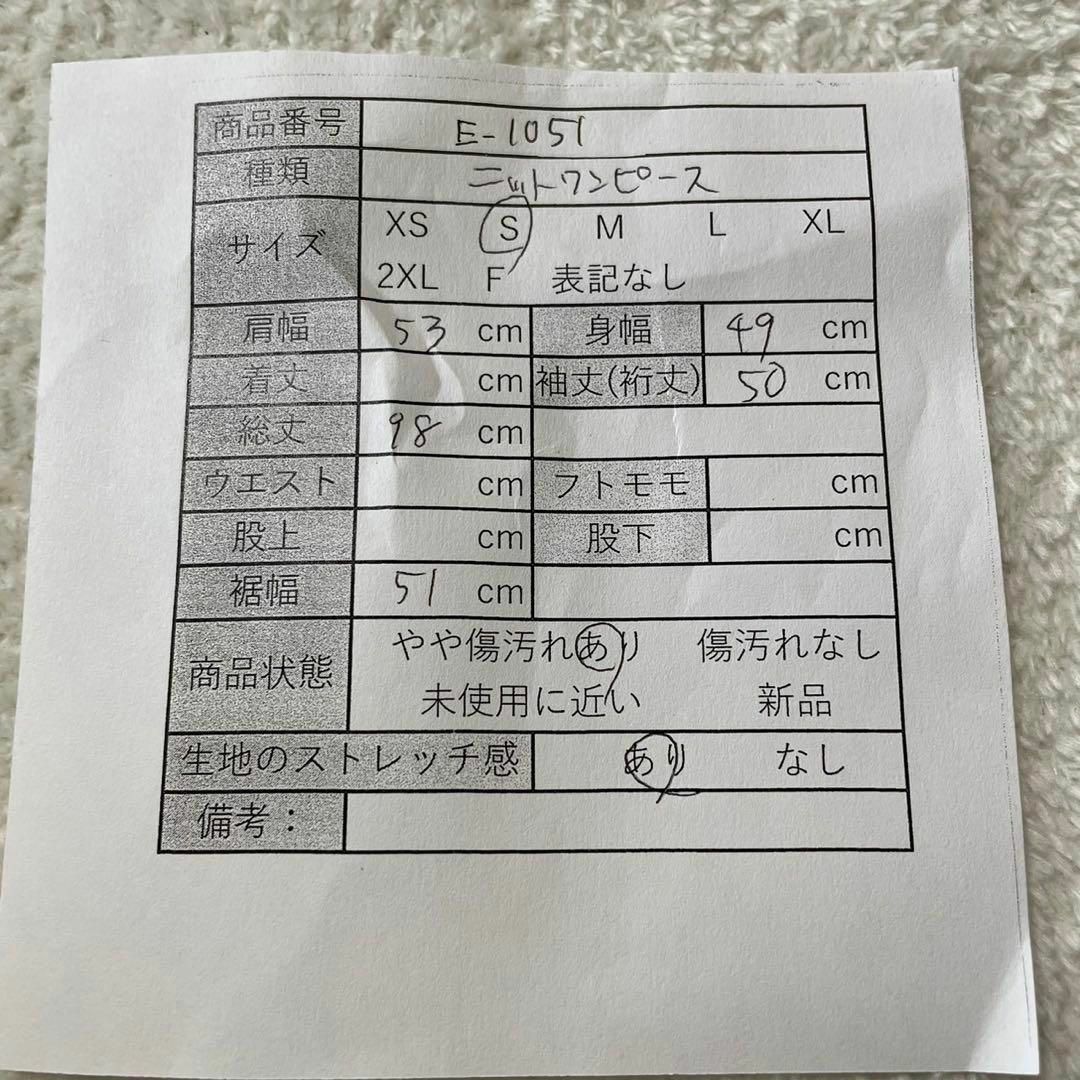 商品番号 E-1051
種類 ニットワンピース
サイズ XS S M L XL
2XL F 表記なし
肩幅 53 cm 身幅 49 cm
着丈 cm 袖丈(裄丈) 50 cm
総丈 98 cm
ウエスト cm フトモモ cm
股上 cm 股下 cm
裾幅 51 cm
商品状態 やや傷汚れあり 傷汚れなし
未使用に近い 新品
生地のストレッチ感 あり なし
備考：